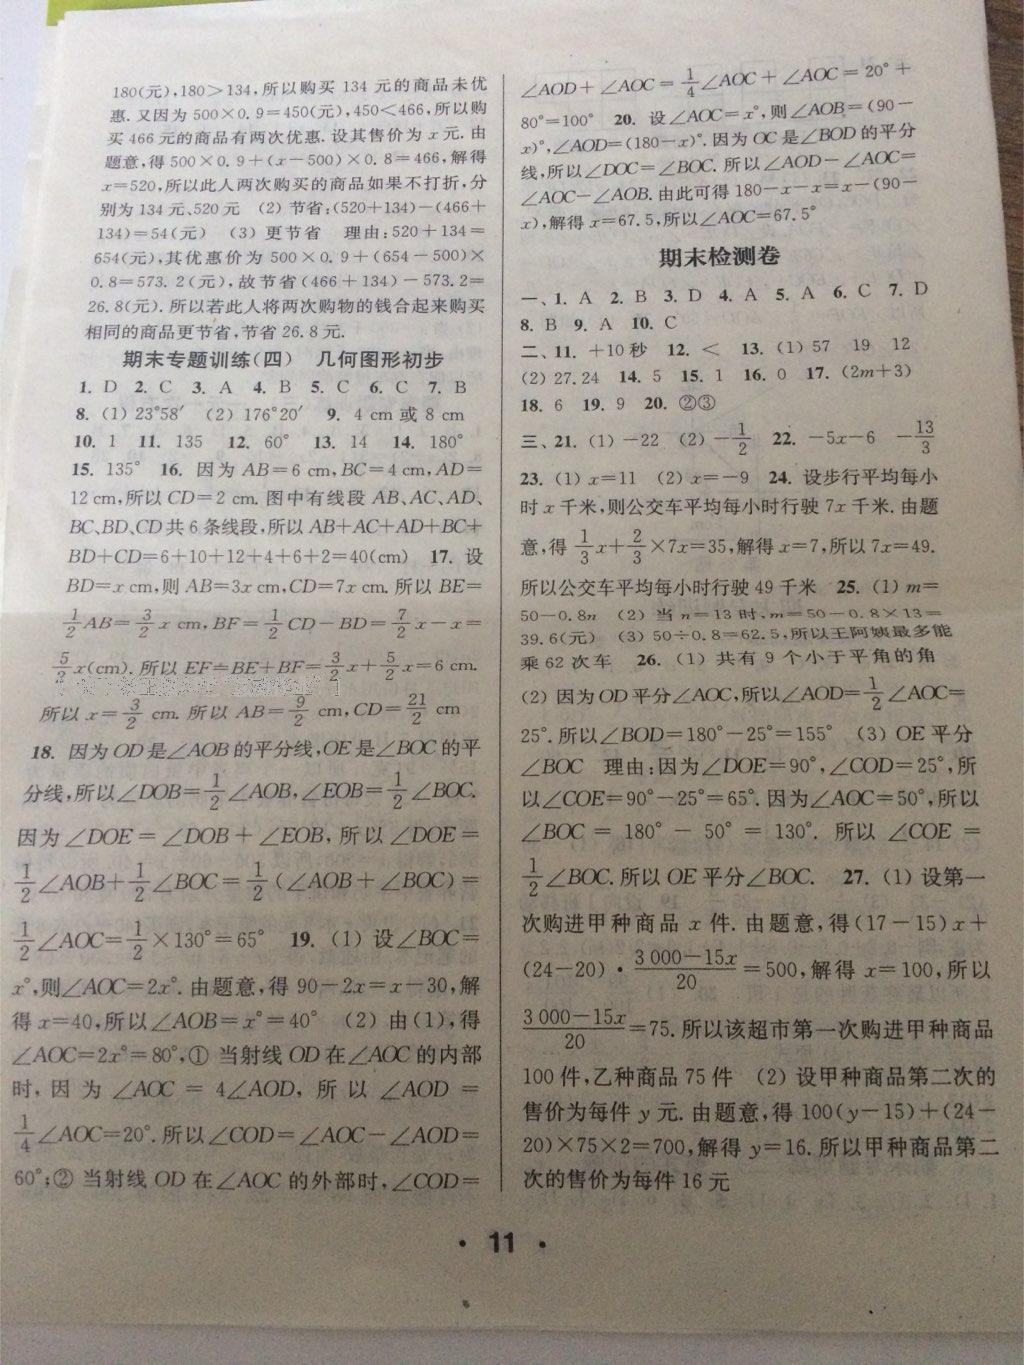 180(元),180>134,所以购买 134 元的商品未优
惠. 又因为 500×0.9=450(元),450<466,所以购
买 466 元的商品有两次优惠. 设其售价为 x 元. 由
题意,得 500×0.9+(x-500)×0.8=466,解得
x=520,所以此人两次购买的商品如果不打折,分
别为 134 元、520 元 (2) 节省:(520+134)-(466+
134)=54(元) (3) 更节省 理由:520+134=
654(元),其优惠价为 500×0.9+(654-500)×
0.8=573.2(元),故节省(466+134)-573.2=
26.8(元). 所以若此人将两次购物的钱合起来购买
相同的商品更节省,节省 26.8 元.
期末专题训练(四) 几何图形初步
1. D 2. C 3. A 4. B 5. C 6. C 7. B
8. (1) 23°58′ (2) 176°20′ 9. 4 cm 或 8 cm
10. 1 11. 135 12. 60° 13. 14 14. 180°
15. 135° 16. 因为 AB=6 cm,BC=4 cm,AD=
12 cm,所以 CD=2 cm. 图中有线段 AB、AC、AD、
BC、BD、CD 共 6 条线段,所以 AB+AC+AD+BC+
BD+CD=6+10+12+4+6+2=40(cm) 17. 设
BD=x cm,则 AB=3x cm,CD=7x cm. 所以 BE=
1/2 AB=3/2 x cm,BF=1/2 CD-BD=7/2 x-x=
5/2 x(cm). 所以 EF=BE+BF=3/2 x+5/2 x=6 cm.
所以 x=3/2 cm. 所以 AB=9/2 cm,CD=21/2 cm
18. 因为 OD 是∠AOB 的平分线,OE 是∠BOC 的平
分线,所以∠DOB=1/2 ∠AOB,∠EOB=1/2 ∠BOC.
因为∠DOE=∠DOB+∠EOB,所以∠DOE=
1/2 ∠AOB+1/2 ∠BOC=1/2 (∠AOB+∠BOC)=
1/2 ∠AOC=1/2×130°=65° 19. (1) 设∠BOC=
x°,则∠AOC=2x°. 由题意,得 90-2x=x-30,解
得 x=40,所以∠AOB=x°=40° (2) 由(1),得
∠AOC=2x°=80°,① 当射线 OD 在∠AOC 的内部
时,因为∠AOC=4∠AOD,所以∠AOD=
1/4 ∠AOC=20°. 所以∠COD=∠AOC-∠AOD=
60°;② 当射线 OD 在∠AOC 的外部时,∠COD=
∠AOD+∠AOC=1/4 ∠AOC+∠AOC=20°+
80°=100° 20. 设∠AOC=x°,则∠AOB=(90-
x)°,∠AOD=(180-x)°. 因为 OC 是∠BOD 的平分
线,所以∠DOC=∠BOC. 所以∠AOD-∠AOC=
∠AOC-∠AOB. 由此可得 180-x-x=x-(90-
x),解得 x=67.5,所以∠AOC=67.5°
期末检测卷
一、1. A 2. B 3. D 4. A 5. A 6. C 7. D
8. B 9. A 10. C
二、11. +10秒 12. < 13. (1) 57 19 12
(2) 27.24 14. 5 15. 1 16. 0 17. (2m+3)
18. 6 19. 9 20. ②③
三、21. (1) -22 (2) -1/2 22. -5x-6 -13/3
23. (1) x=11 (2) x=-9 24. 设步行平均每小
时 x 千米,则公交车平均每小时行驶 7x 千米. 由题
意,得 1/3 x+2/3×7x=35,解得 x=7,所以 7x=49.
所以公交车平均每小时行驶 49 千米 25. (1) m=
50-0.8n (2) 当 n=13 时,m=50-0.8×13=
39.6(元) (3) 50÷0.8=62.5,所以王阿姨最多能
乘 62 次车 26. (1) 共有 9 个小于平角的角
(2) 因为 OD 平分∠AOC,所以∠AOD=1/2 ∠AOC=
25°. 所以∠BOD=180°-25°=155° (3) OE 平分
∠BOC 理由:因为∠DOE=90°,∠COD=25°,所
以∠COE=90°-25°=65°. 因为∠AOC=50°,所以
∠BOC=180°-50°=130°. 所以∠COE=
1/2 ∠BOC. 所以 OE 平分∠BOC. 27. (1) 设第一
次购进甲种商品 x 件. 由题意,得(17-15)x+
(24-20)·(3 000-15x)/20=500,解得 x=100,所以
(3 000-15x)/20=75. 所以该超市第一次购进甲种商品
100 件,乙种商品 75 件 (2) 设甲种商品第二次的
售价为每件 y 元. 由题意,得 100(y-15)+(24-
20)×75×2=700,解得 y=16. 所以甲种商品第二
次的售价为每件 16 元
· 11 ·